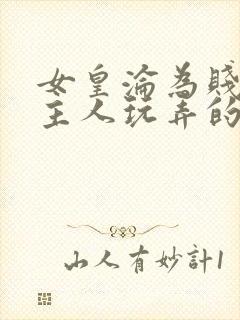 女皇淪為賤
主人玩弄的
山人有妙計1